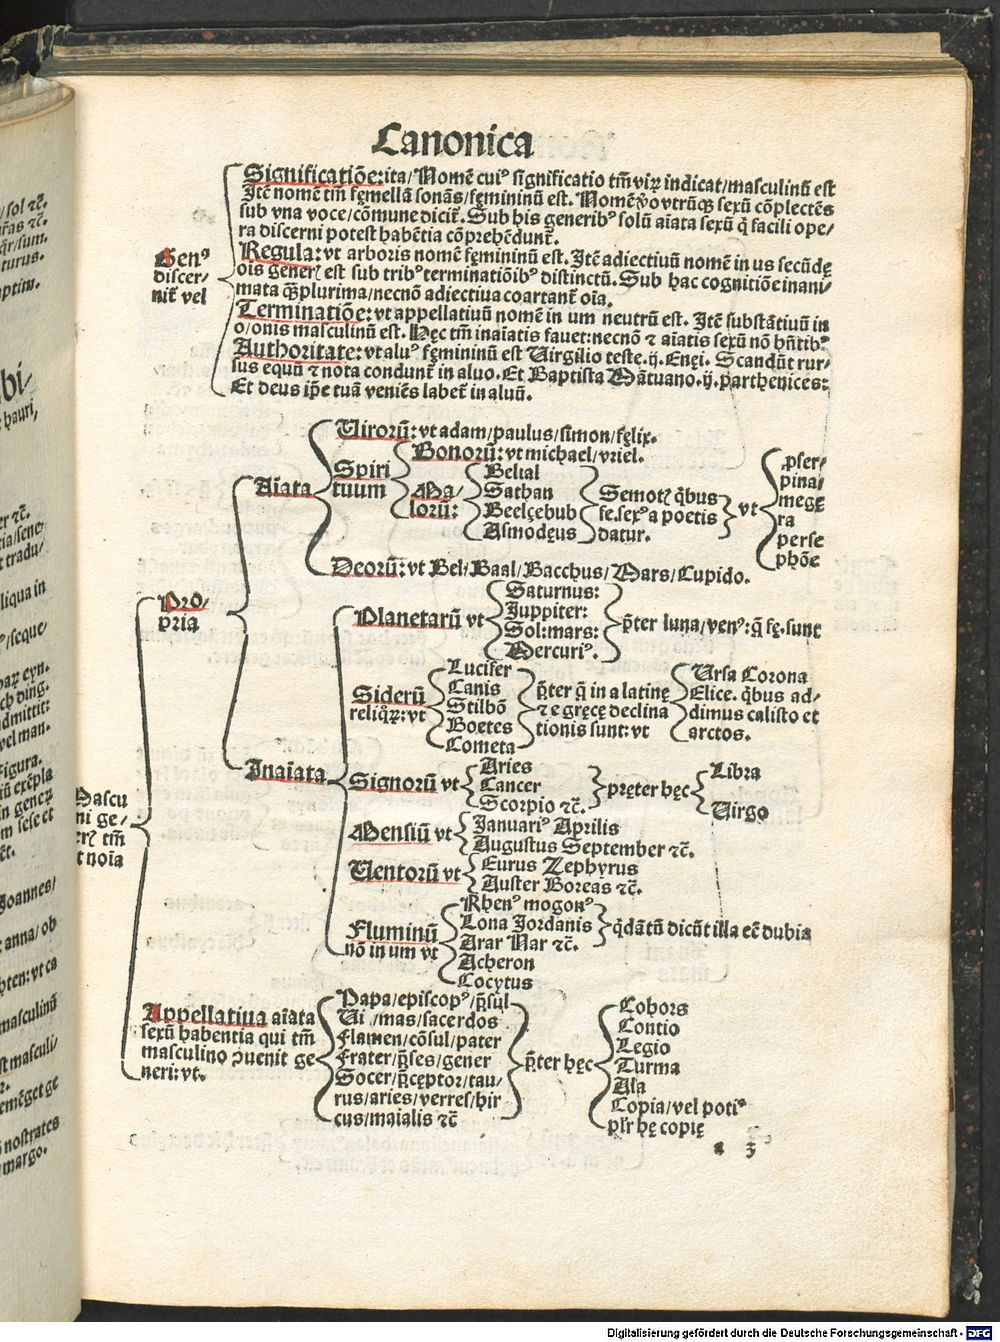 Canonica
Significatiõe: ita / Nomē cuiꝰ significatio tm̃ viꝝ indicat / masculinũ est
Itē nomē tm̃ fęmellã sonãs / fęmininũ est. Nomē ỽo vtrũqꝫ sexũ cõplectēs
sub vna voce / cõmune dicit̃. Sub his generibꝰ solũ aĩata sexũ q̃ facili ope/
ra discerni potest habētia cõprehēdunt̃.
Genꝰ
discer/
nit̃ vel
Regula: vt arboris nomē fęmininũ est. Itē adiectiuũ nomē in us secũdę
oĩs generꝭ est sub tribꝰ terminatiõibꝰ distinctũ. Sub hac cognitiõe inani/
mata q̃ꝫplurima / necnõ adiectiua coartant̃ oĩa.
Terminatiõe: vt appellatiuũ nomē in um neutrũ est. Itē substãtiuũ in
o / onis masculinũ est. Hęc tm̃ inaĩatis fauet: necnõ ⁊ aĩatis sexũ nõ hñtibꝰ
Authoritate: vt aluꝰ fęmininũ est Uirgilio teste. ij. Enęi. Scandũt rur/
sus equũ ⁊ nota condunt̃ in aluo. Et Baptista Mãtuano. ij. parthenices:
Et deus ip̃e tuã veniēs labet̃ in aluũ.
Uirorũ: vt adam / paulus / simon / fęlix.
Aĩata
Spiri
tuum
Bonorũ: vt michael / vriel.
Ma/
lorũ:
Belial
Sathan
Beelçebub
Asmodęus
Semotꝭ q̃bus
fe. sexꝰ a poetis
datur.
vt
ꝓser/
pina/
megę
ra
perse
phõe
Deorũ: vt Bel / Baal / Bacchus / Mars / Cupido.
Pro/
pria
Planetarũ vt
Saturnus:
Juppiter:
Sol: mars:
Mercuriꝰ.
p̃ter luna / venꝰ: q̃ fę. sunt
Siderũ
reliq̃ꝝ: vt
Lucifer
Canis
Stilbõ
Boetes
Cometa
p̃ter q̃ in a latinę
⁊ e gręcę declina
tionis sunt: vt
Ursa Corona
Elice. q̃bus ad/
dimus calisto et
arctos.
Inaĩata
Signorũ vt
Aries
Cancer
Scorpio ⁊c̃.
pręter hęc
Libra
Uirgo
Mascu
ni ge/
erꝭ tm̃
t noĩa
Mensiũ vt
Januariꝰ Aprilis
Augustus September ⁊c̃.
Uentorũ vt
Eurus Zephyrus
Auster Boreas ⁊c̃.
Fluminũ
nõ in um vt
Rhenꝰ mogonꝰ
Lona Jordanis
Arar Nar ⁊c̃.
Acheron
Cocytus
q̃dãtũ dicũt illa eē dubia
Appellatiua aĩata
sexũ habentia qui tm̃
masculino ↄuenit ge
neri: vt.
Papa / episcopꝰ / p̃sul
Ui / mas / sacerdos
Flamen / cõsul / pater
Frater / p̃ses / gener
Socer / p̃cęptor / tau/
rus / aries / verres / hir
cus / maialis ⁊c̃
p̃ter hęc
Cohors
Contio
Legio
Turma
Ala
Copia / vel potiꝰ
pl̃r hę copię
a 3
Digitalisierung gefördert durch die Deutsche Forschungsgemeinschaft - DFG